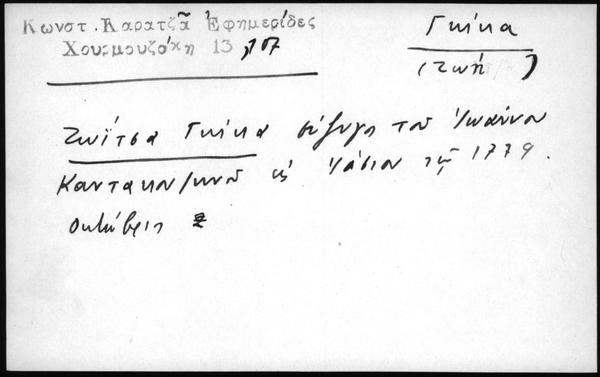 Κωνστ. Καρατζᾶ Ἐφημερίδες
Χουρμουζάκη 13, 107
Γκίκα
(Ζωή)
Ζωΐτσα Γκίκα σύζυγος τοῦ Ἰωάννου
Καντακουζηνοῦ εἰς Ἰάσιον τῷ 1779.
Ὀκτώβριο 2